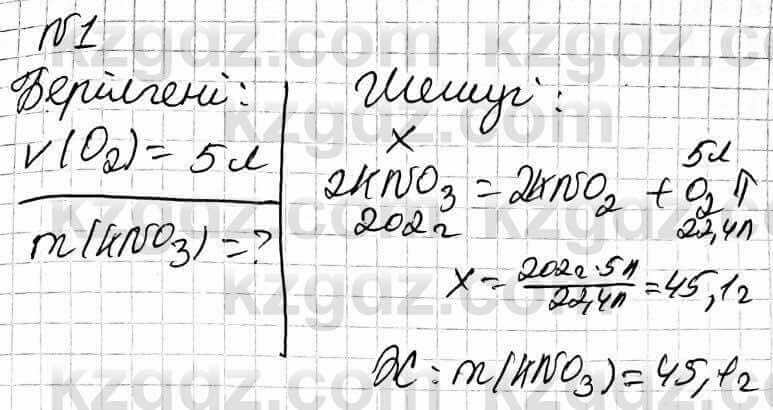 №1
Берілгені:
V(O₂) = 5л
m(KNO₃) = ?
Шешуі:
x 5л
2KNO₃ = 2KNO₂ + O₂↑
202г 22,4л
x = 202г·5л / 22,4л = 45,1г
Ж: m(KNO₃) = 45,1г
kzgdz.com